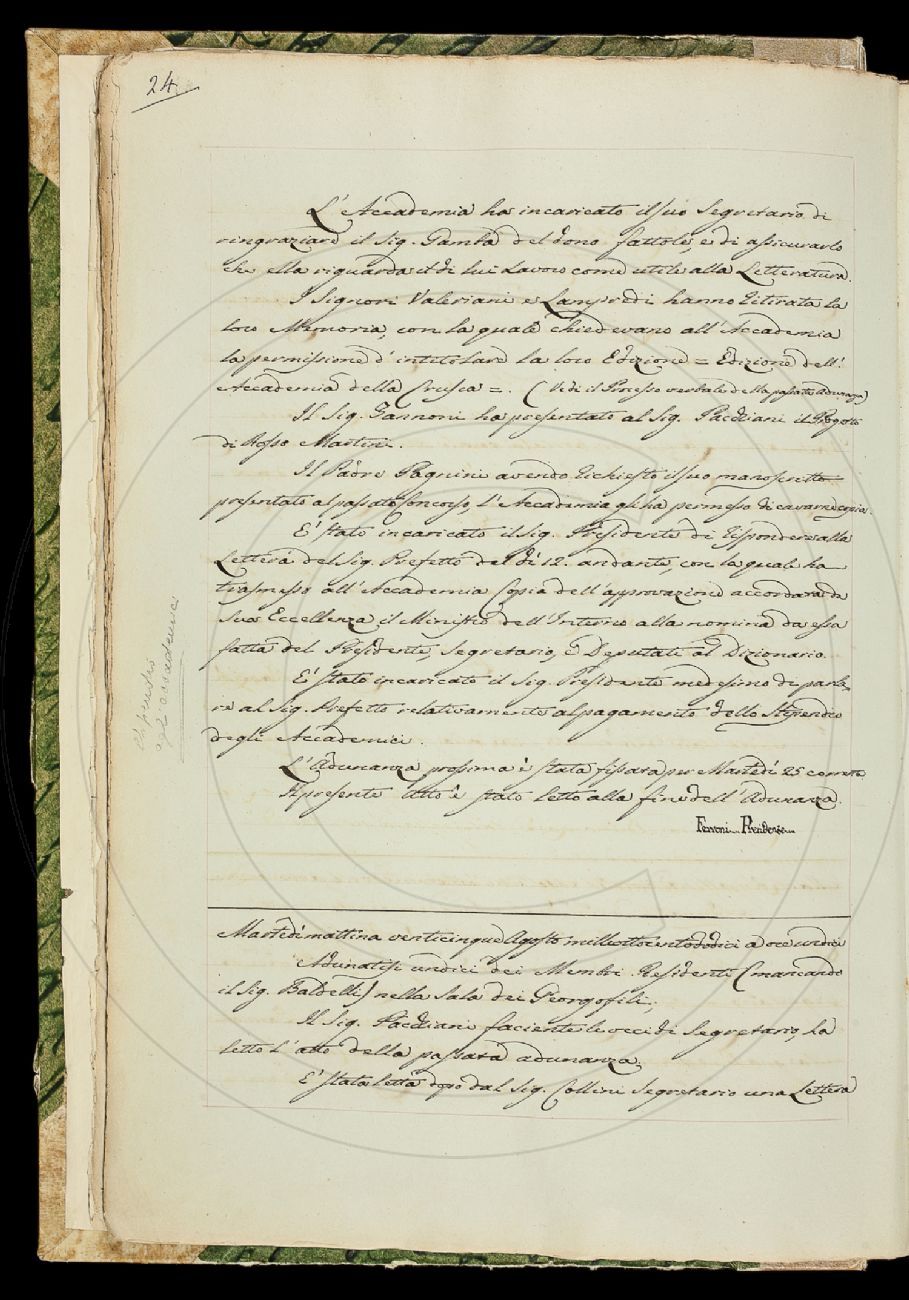 24.
L'Accademia ha incaricato il suo Segretario di
ringraziare il Sig. Gamba del dono fattole, e di assicurarlo
che ella riguarda il di lui Lavoro come utile alla Letteratura.
I Signori Valeriani e Lampredi hanno ritirata la
loro Memoria, con la quale chiedevano all'Accademia
la permissione d'intitolare la loro Edizione = Edizione dell'
Accademia della Crusca =. (Vedi il Processo verbale della passata adunanza)
Il Sig. Zannoni ha presentato al Sig. Pacchiani il
di Rosso Martini.
Il Padre Pagnini avendo richiesto il suo manoscritto
presentato al passato Concorso, l'Accademia gli ha permesso di cavarne copia.
E' stato incaricato il Sig. Presidente di rispondere alla
Lettera del Sig. Prefetto del dì 12. andante, con la quale ha
trasmesso all'Accademia Copia dell'approvazione accordata da
Sua Eccellenza il Ministro dell'Interno alla nomina da essa
fatta del Presidente, Segretario, e Deputati al Dizionario.
E' stato incaricato il Sig. Presidente medesimo di parla-
re al Sig. Prefetto relativamente al pagamento dello Stipendio
degli Accademici.
Stipendio
agli accademici
L'Adunanza prossima è stata fissata per Martedì 25 corrente
Il presente Atto è stato letto alla fine dell'Adunanza.
Ferroni Presidente
Martedì mattina venticinque Agosto milleottocentododici a ore undici
Adunatisi undici dei Membri Residenti (mancando
il Sig. Baldelli) nella Sala dei Georgofili,
Il Sig. Pacchiani faciente le veci di Segretario, ha
letto l'atto della passata adunanza.
E' stata letta dopo dal Sig. Collini Segretario una Lettera